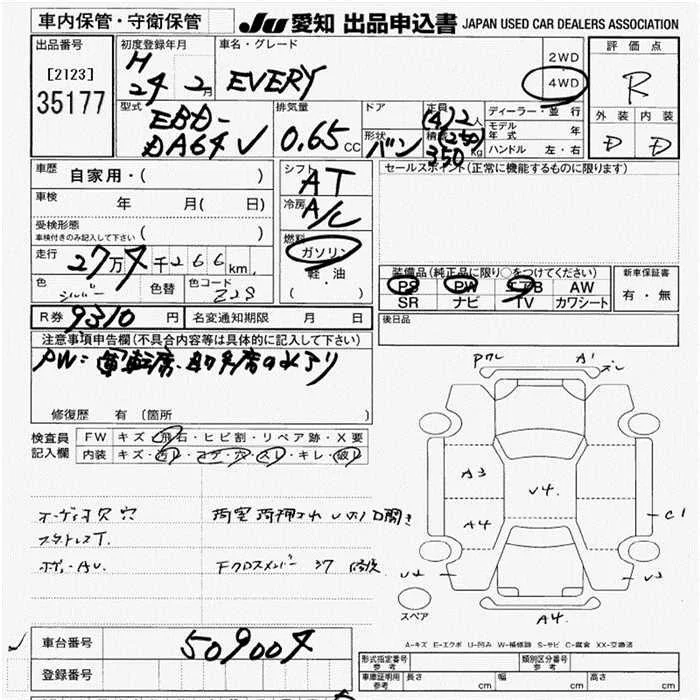 車内保管・守衛保管 JU 愛知 出品申込書 JAPAN USED CAR DEALERS ASSOCIATION
出品番号 初度登録年月 車名・グレード 2WD 評価点
[2123] H 24 2月 EVERY 4WD R
35177
型式 排気量 ドア 定員 ディーラー・並行 外装 内装
EBD- (4)2人 モデル年式 年
DA64V 0.65CC 形状 バン 積載 (250) 350Kg ハンドル 左・右 D D
車歴 自家用・( ) シフト AT セールスポイント(正常に機能するものに限ります)
車検 年 月( 日) 冷房 A/C
受検形態 ( )
車検付きのみ記入して下さい 燃料
走行 27万7千266km ガソリン 装備品(純正品に限り○をつけてください) 新車保証書
軽・油 PS PW AW 有・無
色 シルバー 色替 色コード Z2S ( ) SR ナビ TV カワシート
R券 9310円 名変通知期限 月 日 後日品
注意事項申告欄(不具合内容等は具体的に記入して下さい)
PW:運転席・助手席のみアリ
修復歴 有 〔箇所 〕
検査員 FW キズ・飛石・ヒビ割・リペア跡・X要
記入欄 内装 キズ・汚レ・コゲ・穴・スレ・キレ・破レ
Pクレ A1 ズレ
A3 V4. A4 C1
U2 U3
A4.
スペア
オーディオ欠 穴
スタットレスT.
Fクロスメンバー 修復
A-キズ E-エクボ U-凹み W-補修跡 S-サビ C-腐食 XX-交換済
車台番号 509007
登録番号
形式指定番号 参考 類別区分番号 参考
車庫証明用 参考 長さ cm 幅 cm 高さ cm